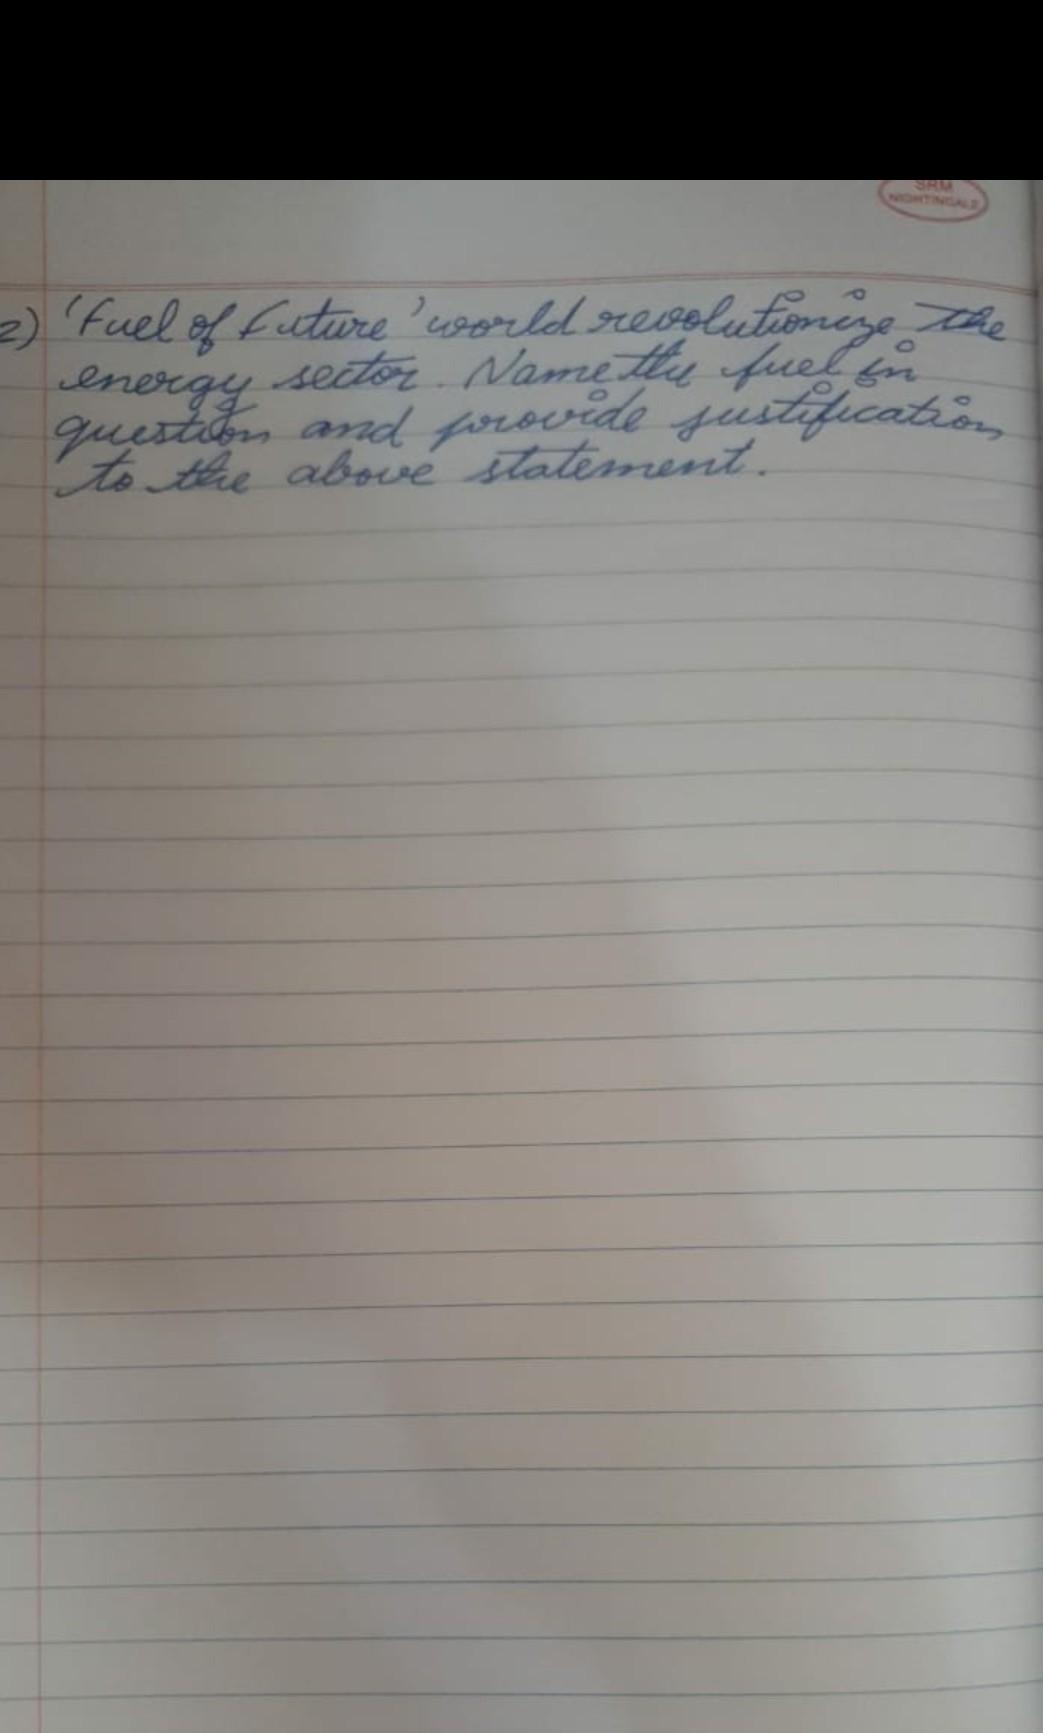 SRM
NIGHTINGALE
2) 'Fuel of Future' world revolutionize the
energy sector. Name the fuel in
question and provide justification
to the above statement.